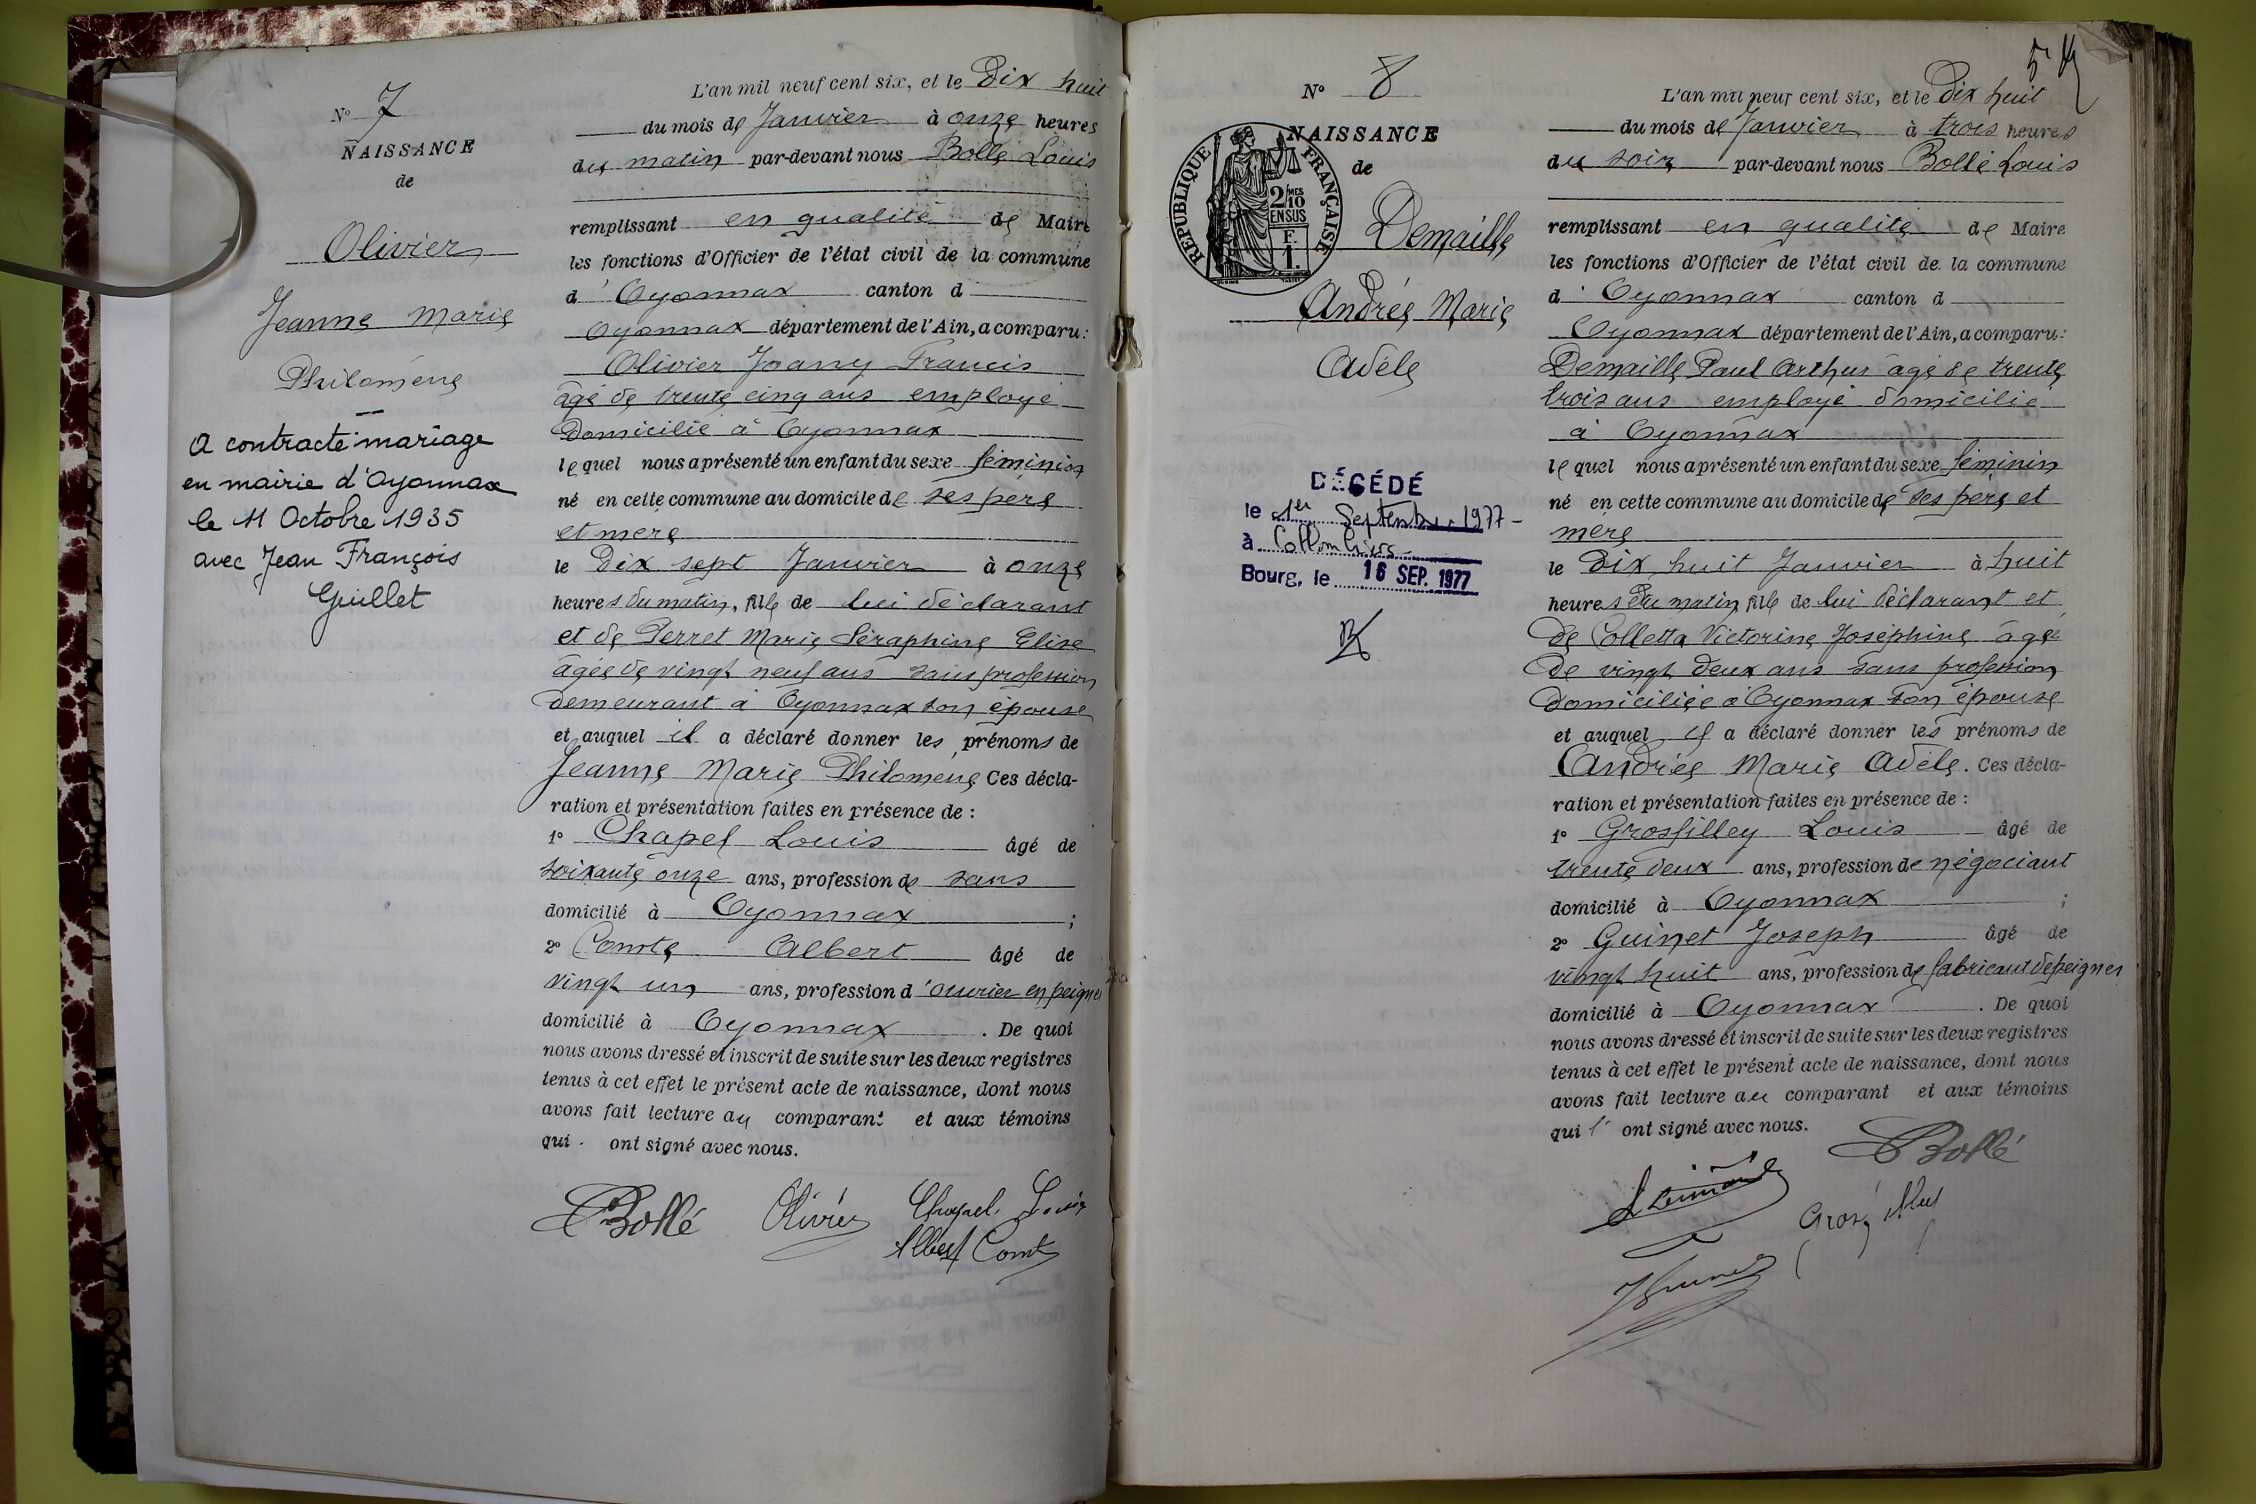 N° 7
NAISSANCE
de
Olivier
Jeanne Marie
Philomène
A contracté mariage
en mairie d'Oyonnax
le 11 Octobre 1935
avec Jean François
Guillet
L'an mil neuf cent six, et le Dix huit
du mois de Janvier à onze heures
du matin par-devant nous Bollé Louis
remplissant en qualité de Maire
les fonctions d'Officier de l'état civil de la commune
d' Oyonnax canton d
Oyonnax département de l'Ain, a comparu :
Olivier Joany Francis
âgé de trente cinq ans employé
domicilié à Oyonnax
lequel nous a présenté un enfant du sexe féminin
né en cette commune au domicile de ses père
et mère
le Dix sept Janvier à onze
heures du matin, fille de lui déclarant
et de Perret Marie Séraphine Elise
âgée de vingt neuf ans sans profession
demeurant à Oyonnax son épouse
et auquel il a déclaré donner les prénoms de
Jeanne Marie Philomène Ces décla-
ration et présentation faites en présence de :
1° Chapel Louis âgé de
soixante onze ans, profession de sans
domicilié à Oyonnax ;
2° Comte Albert âgé de
vingt un ans, profession d'ouvrier en peignes
domicilié à Oyonnax . De quoi
nous avons dressé et inscrit de suite sur les deux registres
tenus à cet effet le présent acte de naissance, dont nous
avons fait lecture au comparant et aux témoins
qui ont signé avec nous.
Bollé Olivier Chapel Louis
Albert Comte
54
N° 8
NAISSANCE
de
REPUBLIQUE FRANÇAISE
2/10 MES
EN SUS
F.
1.
Demaille
Andrée Marie
Adèle
DÉCÉDÉ
le 1er Septembre 1977
à Collombiers
Bourg, le 16 SEP. 1977
L'an mil neuf cent six, et le Dix huit
du mois de Janvier à trois heures
du soir par-devant nous Bollé Louis
remplissant en qualité de Maire
les fonctions d'Officier de l'état civil de la commune
d' Oyonnax canton d
Oyonnax département de l'Ain, a comparu :
Demaille Paul Arthur âgé de trente
trois ans employé domicilié
à Oyonnax
lequel nous a présenté un enfant du sexe féminin
né en cette commune au domicile de ses père et
mère
le Dix huit Janvier à huit
heures du matin fille de lui déclarant et
de Colletta Victorine Joséphine âgée
de vingt deux ans sans profession
domiciliée à Oyonnax son épouse
et auquel il a déclaré donner les prénoms de
Andrée Marie Adèle. Ces décla-
ration et présentation faites en présence de :
1° Grosfilley Louis âgé de
trente deux ans, profession de négociant
domicilié à Oyonnax ;
2° Guinet Joseph âgé de
vingt huit ans, profession de fabricant de peignes
domicilié à Oyonnax . De quoi
nous avons dressé et inscrit de suite sur les deux registres
tenus à cet effet le présent acte de naissance, dont nous
avons fait lecture au comparant et aux témoins
qui ont signé avec nous.
Bollé